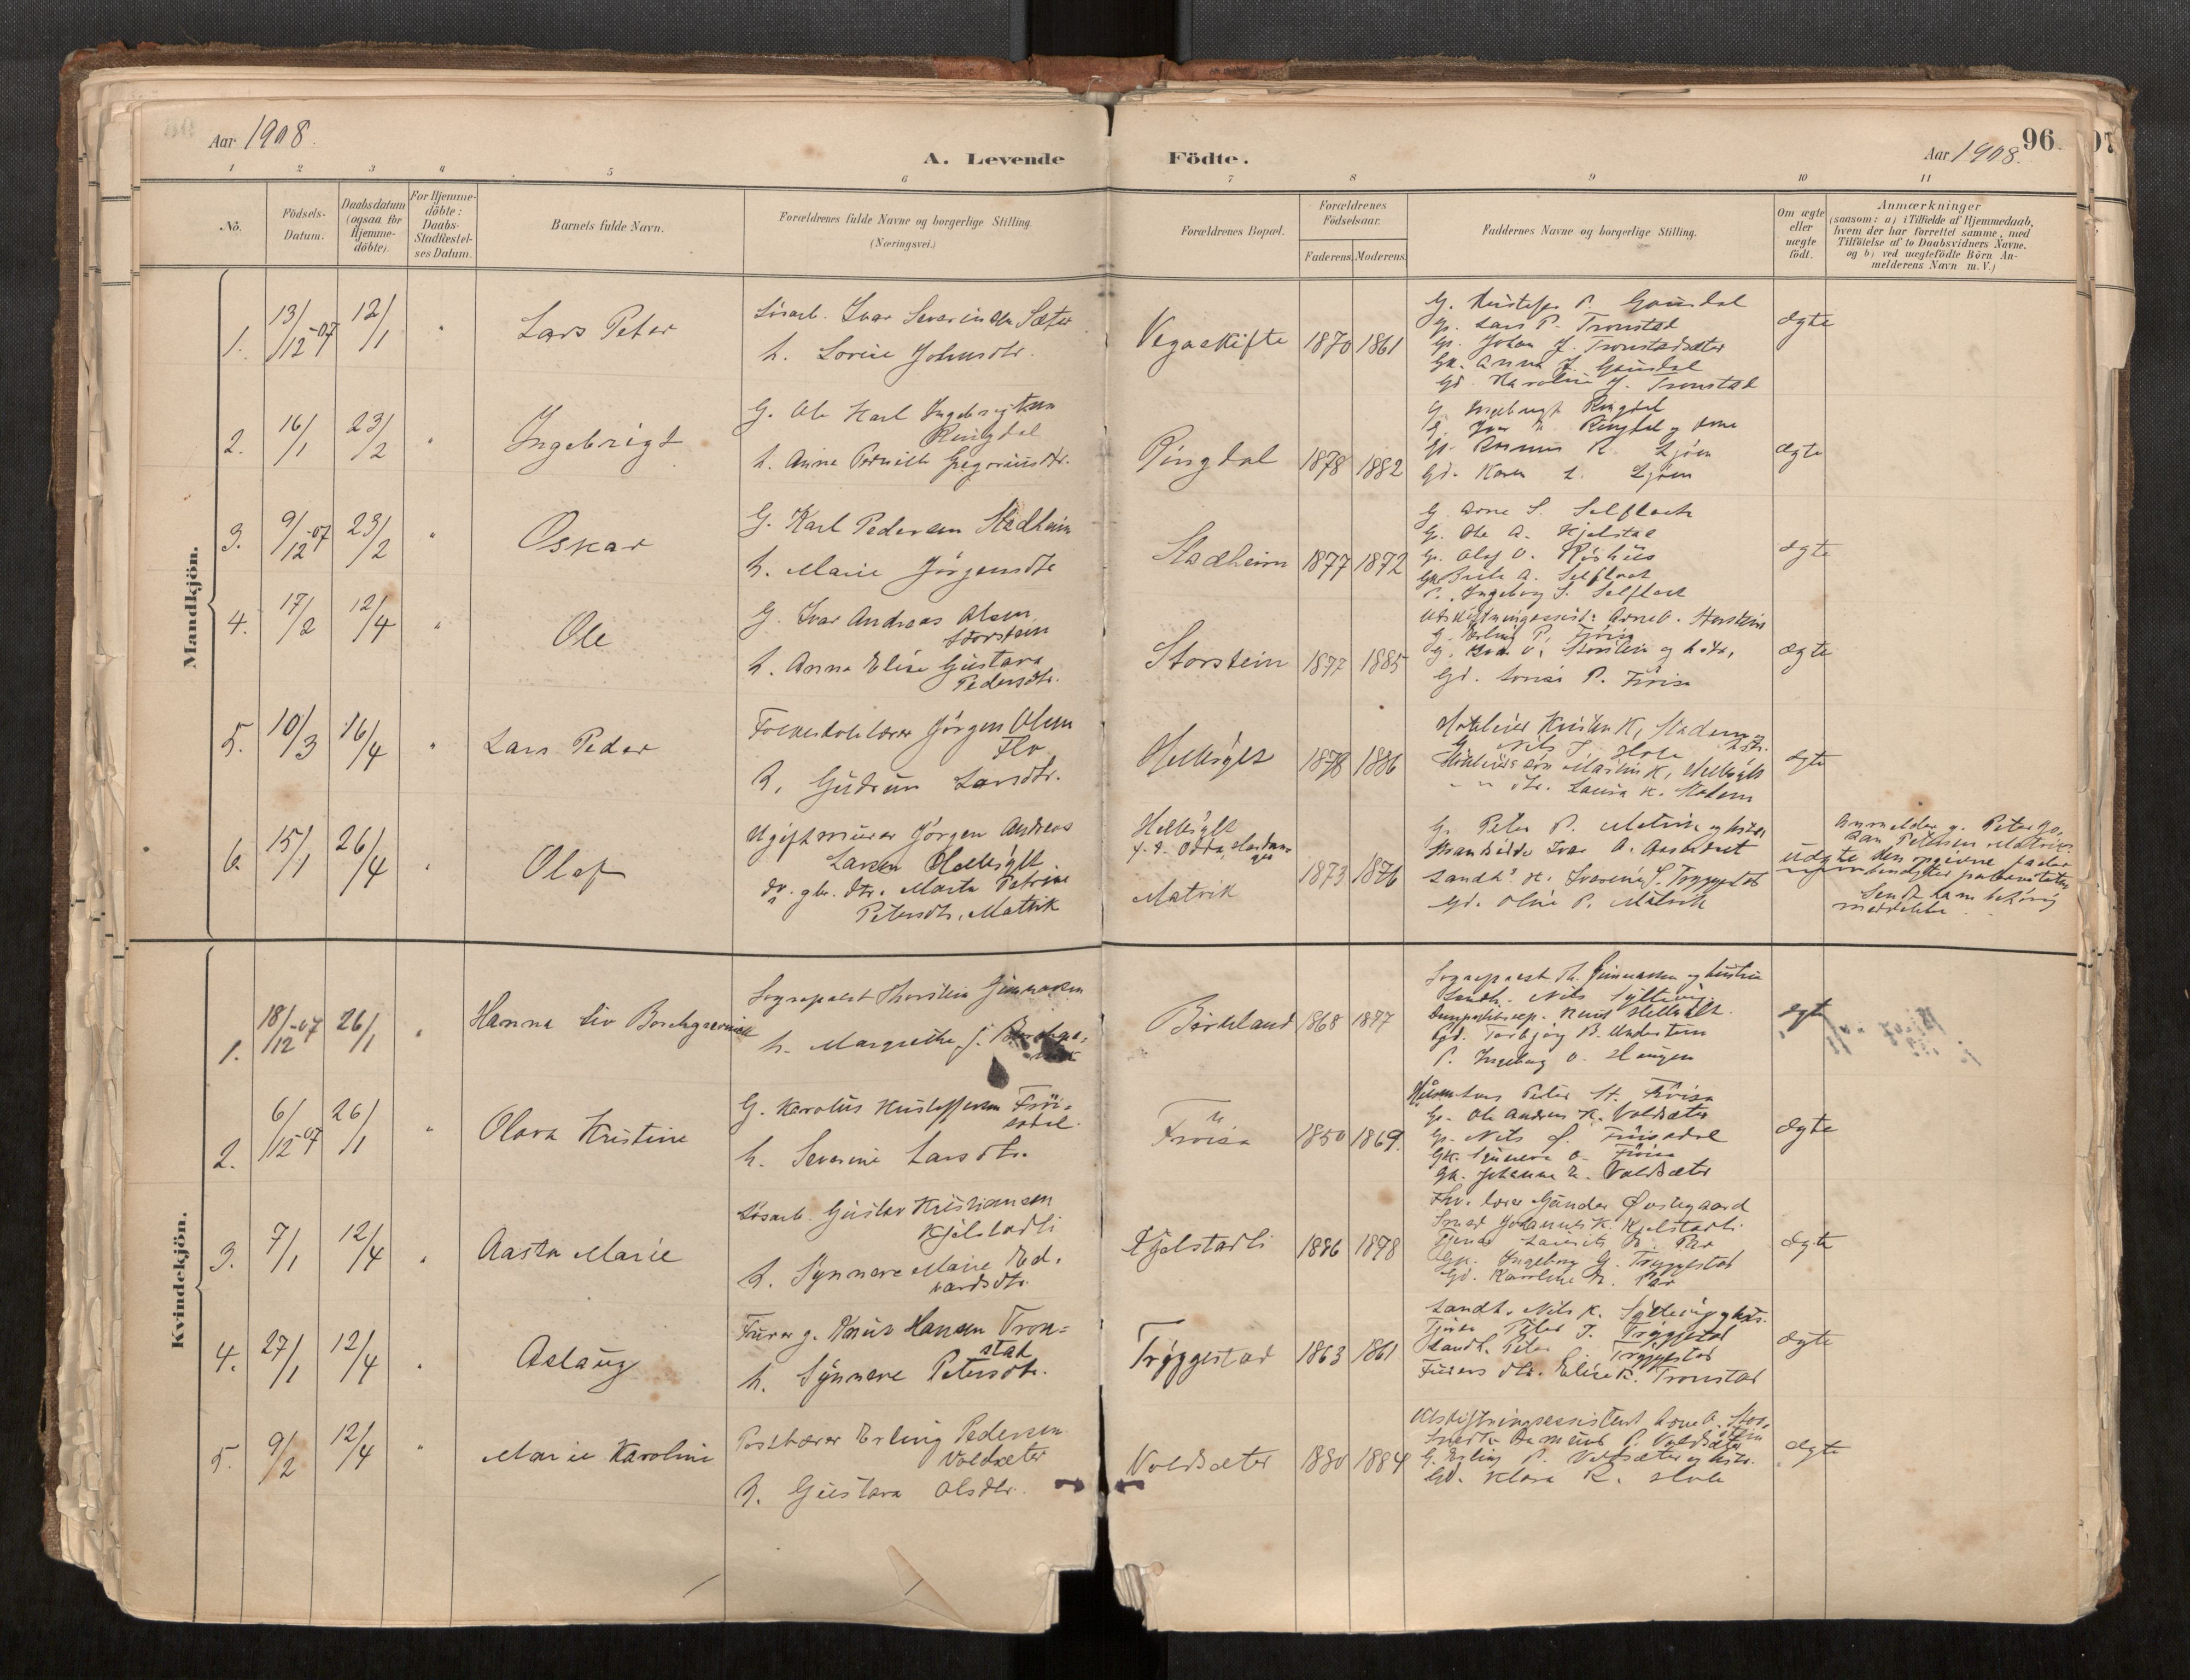 Aar 1908.
A. Levende Födte.
Aar 1908.
96
1 2 3 4 5 6 7 8 9 10 11
No.
Födsels-Datum.
Daabsdatum (ogsaa for Hjemme-döbte).
For Hjemme-döbte: Daabs-Stadfæstel-ses Datum.
Barnets fulde Navn.
Forældrenes fulde Navne og borgerlige Stilling.
(Næringsvei.)
Forældrenes Bopæl.
Forældrenes Födselsaar.
Faderens. Moderens.
Faddernes Navne og borgerlige Stilling.
Om ægte eller uægte födt.
Anmærkninger
(saasom: a) i Tilfælde af Hjemmedaab,
hvem der har forrettet samme, med
Tilföielse af to Daabsvidners Navne.
og b) ved uægtefödte Börn An-
melderens Navn m. V.)
Mandkjön.
1. 13/12-07 12/1 " Lars Peter
Løsarb. Ivar Severinsen Sæter
h. Lovise Johnsdtr.
Vegaskifte 1870 1861
G. Kristoffer P. Gausdal
Gs. Lars P. Tronstad
Gs. Johan J. Tronstadsæter
Gk. Anna J. Gausdal
Gd. Karoline J. Tronstad
ægte
2. 16/1 23/2 " Ingebrigt
G. Ole Karl Ingebrigtsen
Ringdal
h. Anne Pernille Gregoriusdtr.
Ringdal 1878 1882
G. Ingebrigt Ringdal
G. Ivar Ringdal og
Gs. Rasmus R. Ljøen
Gd. Karen L. Ljøen
ægte
3. 9/12-07 23/2 " Oskar
G. Karl Pedersen Stadheim
h. Marie Jørgensdtr
Stadheim 1877 1872
G. Arne S. Selfloat
G. Ole A. Kjelstad
G. Olaf O. Røshus
Gk. Brite A. Selfloat
P. Ingeborg S. Selfloat
ægte
4. 17/2 12/4 " Ole
G. Ivar Andreas Olsen
Storstein
h. Anna Elise Gustava
Pedersdtr.
Storstein 1877 1885
Utskiftningsassist. Arne O. Storstein
G. Erling P. Frøisa
G. Knut O. Storstein og hstr.
Gd. Lovise P. Frøisa
ægte
5. 10/3 16/4 " Lars Peder
Folkeskolelærer Jørgen Olsen
Flo
h. Gudrun Larsdtr.
Hellesylt 1878 1886
Hotelier Kristen K. Stadheim
G. Nils J. Hole
Hotelierssøn Martin K. Hellesylt
" " dtr. Laura K. Stadheim
ægte
6. 15/1 26/4 " Olaf
Ugift murer Jørgen Andreas
Larsen Hellesylt
og gbr. dtr. Marta Petrine
Petersdtr. Matvik
Hellesylt
f. t. Odda, Hardanger
Matvik
1873 1876
G. Peter P. Matvik og hstr
Gd. Oline P. Matvik
uægte
Anmelder g. Peter
Petersen Matvik.
den opgivne fader
meddelelse.
Kvindekjön.
1. 18/12-07 26/1 " Hanna Liv Borchgrevink
Sognepræst Thorstein Gunnarson
h. Margrethe J. Borchgrevink
Birkeland 1868 1877
Sognepræst Th. Gunnarson og hustru
Landh. Nils Sylteving
Knud Hellesylt
Gd. Torbjørg B. Understein
P. Ingeborg O. Haugen
ægte
2. 6/12-07 26/1 " Olava Kristine
G. Karolus Kristoffersen Frøisadal
h. Severine Larsdtr.
Frøisa 1850 1869.
Husm. Lars Peter St. Frøisa
Gs. Ole Andreas K. Voldsæter
Gs. Nils O. Frøisadal
Gk. Synneva O. Frøisa
Gk. Johanne E. Voldsæter
ægte
3. 7/1 12/4 " Aasta Marie
Løsarb. Gustav Kristiansen
Kjelstadli
h. Synnøve Marie Edvardsdtr.
Kjelstadli 1886 1878
Fhv. lærer Gunder Øvstegaard
Smed Johannes K. Kjelstadli
Tjener Laurits R. Røv
Gk. Ingeborg G. Tryggestad
Gd. Karoline R. Røv
ægte
4. 27/1 12/4 " Aslaug
Furer g. Knut Hansen Tronstad
h. Synnøve Petersdtr.
Tryggestad 1863 1861
Landh. Nils K. Sylteving og hstr.
Tjener Peter J. Tryggestad
Landh. Peter Tryggestad
Furers dtr. Elise K. Tronstad
ægte
5. 9/2 12/4 " Marie Karoline
Postbærer Erling Pedersen
Voldsæter
h. Gustava Olsdtr.
Voldsæter 1880 1884
Utskiftningsassistent Arne O. Storstein
Rasmus P. Voldsæter
G. Erling P. Voldsæter og hstr.
Gd. Klara K. Hole
ægte